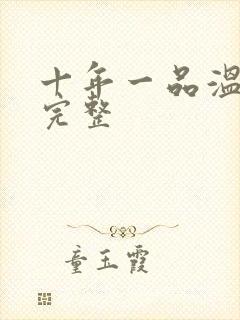 十年一品温
完整
童玉霞